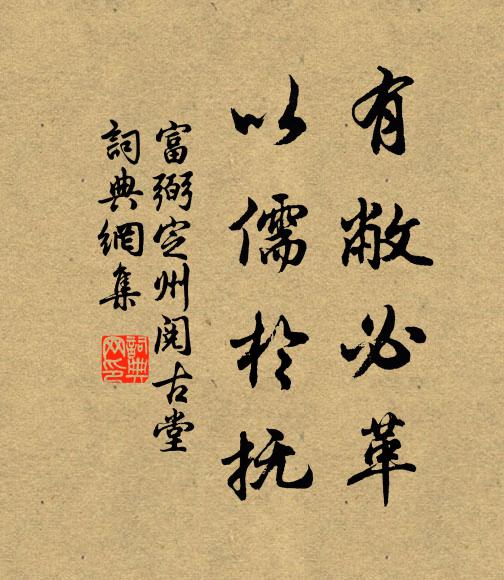 有敝必革
以儒於抚
富弼定州阅古堂
詞典網集
詞典
网印